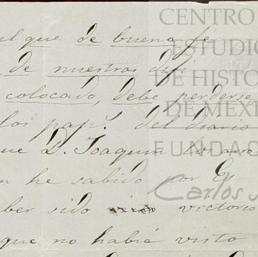 el que de buena fé
de nuestros di
colocado, debe perderse
los pap.s del diario
que D. Joaquin
n he sabido por G
ber sido victorio
que no habia visto
CENTRO
ESTUDIO
DE HISTO
DE MÉXI
FUNDAC
Carlos S